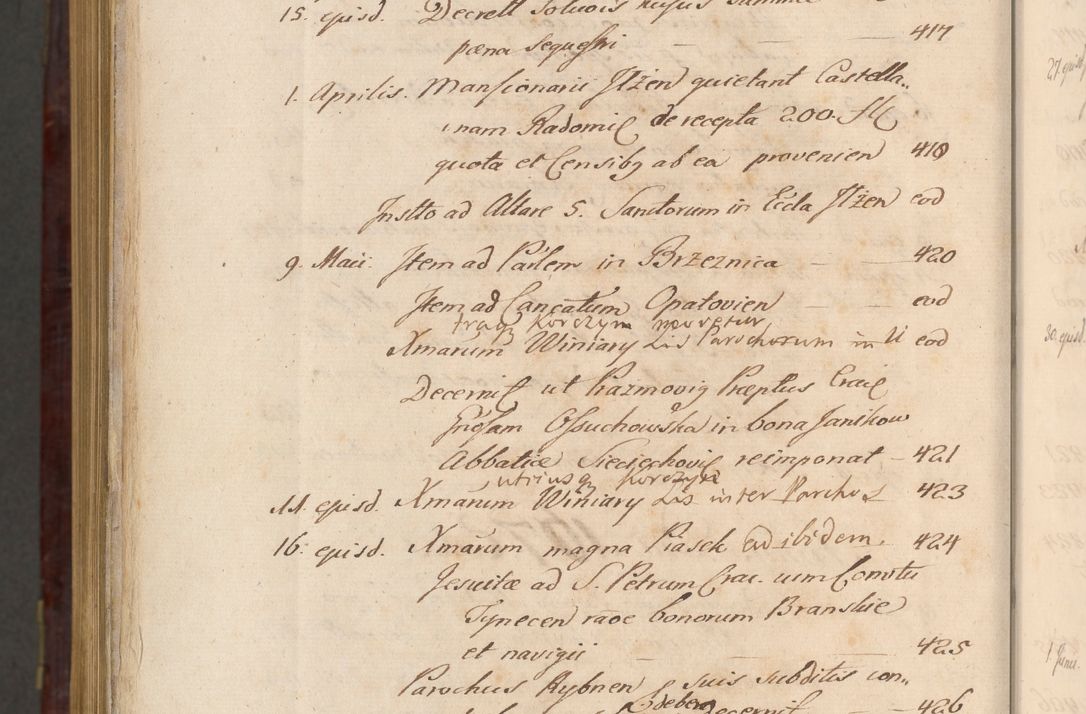 15. episd. Decrett Solvois hujus summae
pæna sequestri — — — 417
1. Aprilis. Mansionarii Jłżen quietant Castella„
nam Radomi de recepta 200. fl
quota et Censibg ab ea provenien 418
Instto ad Altare 5. Sanctorum in Eccla Jłżen eod
9. Maii. Item ad Parlem in Brzeznica — — 420
Item ad Cancatum Opatovien — — eod
Xmarum Winiary Lis Parochorum in U eod
Decernit ut Prazmovig Præptus
Ossuchowska in bona Janikow
Abbatiæ Sieciechovi reimponat — 421
utriusq Korczyn
11. episd. Xmarum Winiary Lis inter Parchos 423
16. episd. Xmarum magna Piasek ad ibidem. 424
Jesuitæ ad S. Petrum Crac. cum Conotu
Tynecen raoe bonorum Branskie
et navigii — — — 425
Parochus Rybnen suis subditis con„
debera decernit 426
27. episd.
30. episd.
1. Junii.